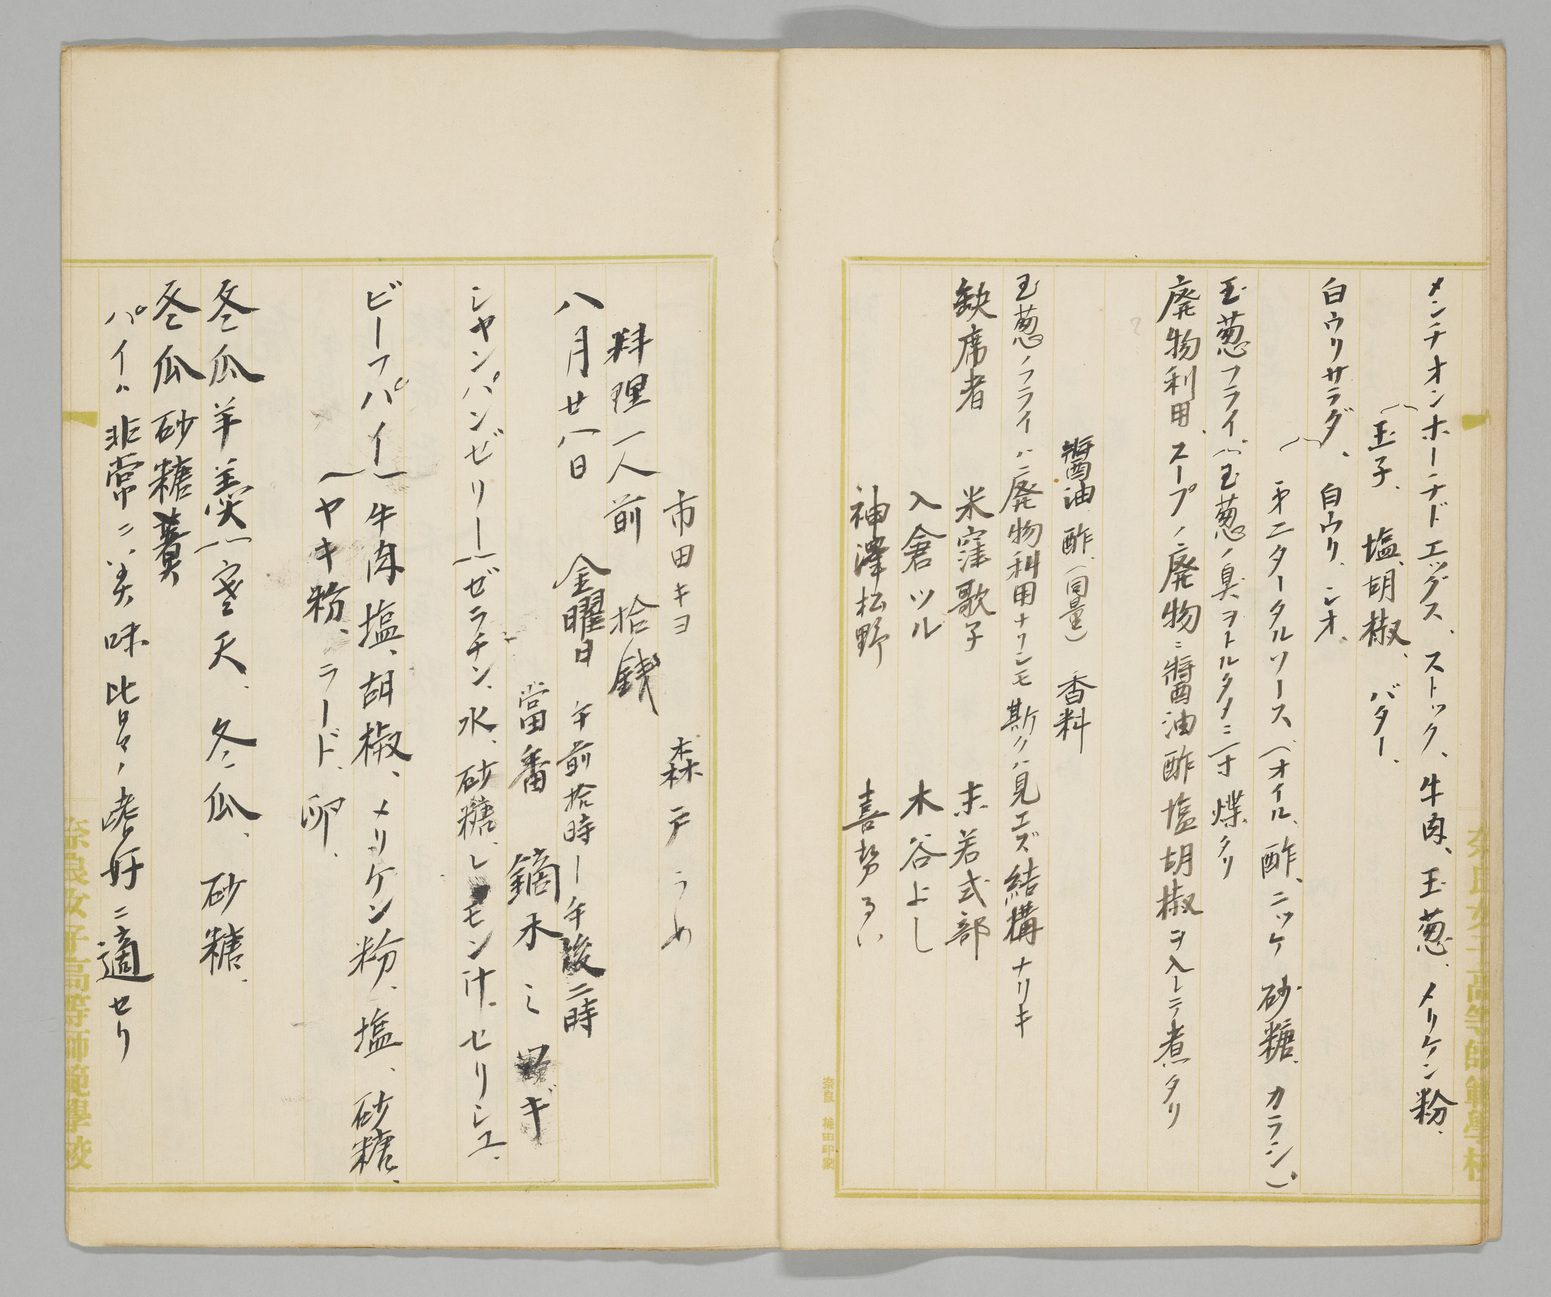 メンチオンホーチドエッグス、ストック、牛肉、玉葱、メリケン粉、
(玉子、塩、胡椒、バター、
白ウリサラダ、白ウリ、シオ、
(オニタータルソース、(オイル、酢、ニッケ 砂糖、カラシ)
玉葱フライ(玉葱ノ臭ヲトルタメニ一寸煠タリ
廃物利用、スープノ廃物ニ醤油酢塩胡椒ヲ入レテ煮タリ
醤油 酢、(同量) 香料
玉葱ノフライハ廃物利用ナリシモ斯クハ見エズ結構ナリキ
缺席者 米窪歌子 末若式部
入倉ツル 木谷よし
神澤松野 喜勢るい
市田キヨ 森戸うめ
料理一人前 拾銭
八月廿八日 金曜日 午前拾時ー午後二時
當番 鏑木ミギ
シャンパンゼリー(ゼラチン、水、砂糖、レモン汁、セリシユ、
ビーフパイ(牛肉 塩、胡椒、メリケン粉、塩、砂糖、
(ヤキ粉、ラード、卵、
冬瓜羊羹(寒天、冬瓜、砂糖、
冬瓜砂糖羹
パイハ非常ニ美味皆々ノ嗜好ニ適セリ
奈良女子高等師範學校
奈良女子高等師範學校
奈良 梅田印製